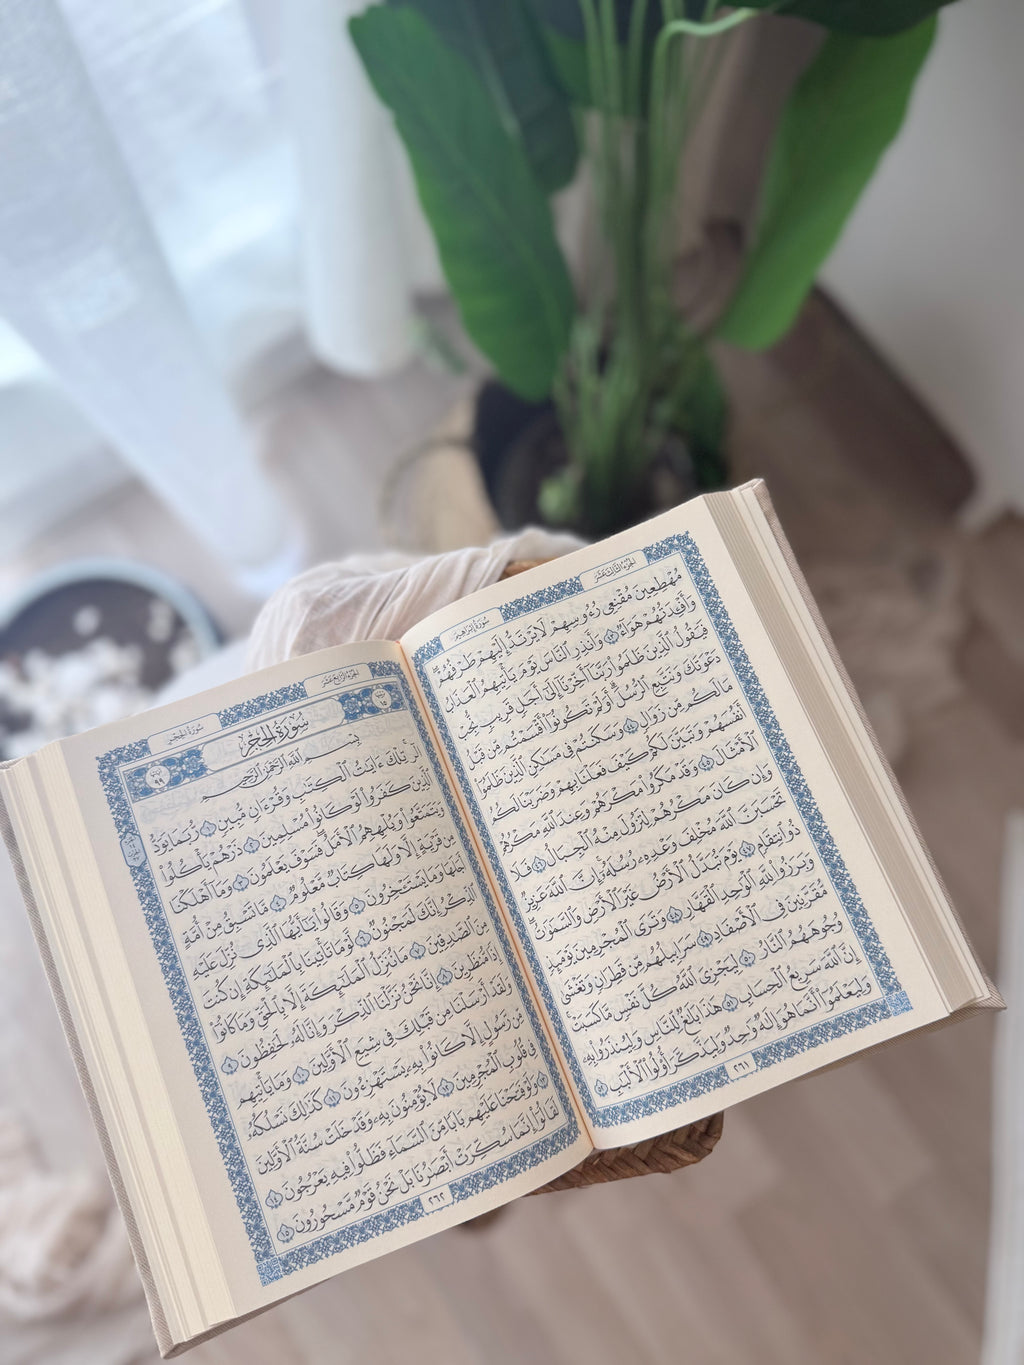 الجزء الثالث عشر
سورة إبراهيم
مُهْطِعِينَ مُقْنِعِى رُءُوسِهِمْ لَا يَرْتَدُّ إِلَيْهِمْ طَرْفُهُمْ ۖ
وَأَفْـِٔدَتُهُمْ هَوَآءٌ ٤٣ وَأَنذِرِ ٱلنَّاسَ يَوْمَ يَأْتِيهِمُ ٱلْعَذَابُ
فَيَقُولُ ٱلَّذِينَ ظَلَمُوا۟ رَبَّنَآ أَخِّرْنَآ إِلَىٰٓ أَجَلٍ قَرِيبٍ نُّجِبْ
دَعْوَتَكَ وَنَتَّبِعِ ٱلرُّسُلَ ۗ أَوَلَمْ تَكُونُوٓا۟ أَقْسَمْتُم مِّن قَبْلُ
مَا لَكُم مِّن زَوَالٍ ٤٤ وَسَكَنتُمْ فِى مَسَٰكِنِ ٱلَّذِينَ ظَلَمُوٓا۟
أَنفُسَهُمْ وَتَبَيَّنَ لَكُمْ كَيْفَ فَعَلْنَا بِهِمْ وَضَرَبْنَا لَكُمُ
ٱلْأَمْثَالَ ٤٥ وَقَدْ مَكَرُوا۟ مَكْرَهُمْ وَعِندَ ٱللَّهِ مَكْرُهُمْ
وَإِن كَانَ مَكْرُهُمْ لِتَزُولَ مِنْهُ ٱلْجِبَالُ ٤٦ فَلَا
تَحْسَبَنَّ ٱللَّهَ مُخْلِفَ وَعْدِهِۦ رُسُلَهُۥٓ ۗ إِنَّ ٱللَّهَ عَزِيزٌ
ذُو ٱنتِقَامٍ ٤٧ يَوْمَ تُبَدَّلُ ٱلْأَرْضُ غَيْرَ ٱلْأَرْضِ وَٱلسَّمَٰوَٰتُ ۖ
وَبَرَزُوا۟ لِلَّهِ ٱلْوَٰحِدِ ٱلْقَهَّارِ ٤٨ وَتَرَى ٱلْمُجْرِمِينَ يَوْمَئِذٍ
مُّقَرَّنِينَ فِى ٱلْأَصْفَادِ ٤٩ سَرَابِيلُهُم مِّن قَطِرَانٍ وَتَغْشَىٰ
وُجُوهَهُمُ ٱلنَّارُ ٥٠ لِيَجْزِىَ ٱللَّهُ كُلَّ نَفْسٍ مَّا كَسَبَتْ ۚ
إِنَّ ٱللَّهَ سَرِيعُ ٱلْحِسَابِ ٥١ هَٰذَا بَلَٰغٌ لِّلنَّاسِ وَلِيُنذَرُوا۟ بِهِۦ
وَلِيَعْلَمُوٓا۟ أَنَّمَا هُوَ إِلَٰهٌ وَٰحِدٌ وَلِيَذَّكَّرَ أُو۟لُوا۟ ٱلْأَلْبَٰبِ ٥٢
٢٦١
الجزء الرابع عشر
سورة الحجر
١٥
سُورَةُ الحِجْرِ
٩٩
بِسْمِ ٱللَّهِ ٱلرَّحْمَٰنِ ٱلرَّحِيمِ
الٓر ۚ تِلْكَ ءَايَٰتُ ٱلْكِتَٰبِ وَقُرْءَانٍ مُّبِينٍ ١ رُّبَمَا يَوَدُّ
ٱلَّذِينَ كَفَرُوا۟ لَوْ كَانُوا۟ مُسْلِمِينَ ٢ ذَرْهُمْ يَأْكُلُوا۟
وَيَتَمَتَّعُوا۟ وَيُلْهِهِمُ ٱلْأَمَلُ ۖ فَسَوْفَ يَعْلَمُونَ ٣ وَمَآ أَهْلَكْنَا
مِن قَرْيَةٍ إِلَّا وَلَهَا كِتَابٌ مَّعْلُومٌ ٤ مَّا تَسْبِقُ مِنْ أُمَّةٍ
أَجَلَهَا وَمَا يَسْتَـْٔخِرُونَ ٥ وَقَالُوا۟ يَٰٓأَيُّهَا ٱلَّذِى نُزِّلَ عَلَيْهِ
ٱلذِّكْرُ إِنَّكَ لَمَجْنُونٌ ٦ لَّوْ مَا تَأْتِينَا بِٱلْمَلَٰٓئِكَةِ إِن كُنتَ
مِنَ ٱلصَّٰدِقِينَ ٧ مَا نُنَزِّلُ ٱلْمَلَٰٓئِكَةَ إِلَّا بِٱلْحَقِّ وَمَا كَانُوٓا۟
إِذًا مُّنظَرِينَ ٨ إِنَّا نَحْنُ نَزَّلْنَا ٱلذِّكْرَ وَإِنَّا لَهُۥ لَحَٰفِظُونَ ٩
وَلَقَدْ أَرْسَلْنَا مِن قَبْلِكَ فِى شِيَعِ ٱلْأَوَّلِينَ ١٠ وَمَا يَأْتِيهِم
مِّن رَّسُولٍ إِلَّا كَانُوا۟ بِهِۦ يَسْتَهْزِءُونَ ١١ كَذَٰلِكَ نَسْلُكُهُۥ
فِى قُلُوبِ ٱلْمُجْرِمِينَ ١٢ لَا يُؤْمِنُونَ بِهِۦ ۖ وَقَدْ خَلَتْ سُنَّةُ ٱلْأَوَّلِينَ
١٣ وَلَوْ فَتَحْنَا عَلَيْهِم بَابًا مِّنَ ٱلسَّمَآءِ فَظَلُّوا۟ فِيهِ يَعْرُجُونَ ١٤
لَقَالُوٓا۟ إِنَّمَا سُكِّرَتْ أَبْصَٰرُنَا بَلْ نَحْنُ قَوْمٌ مَّسْحُورُونَ ١٥
٢٦٢